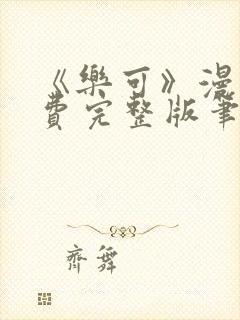 《樂可》漫
費完整版筆
齊舞